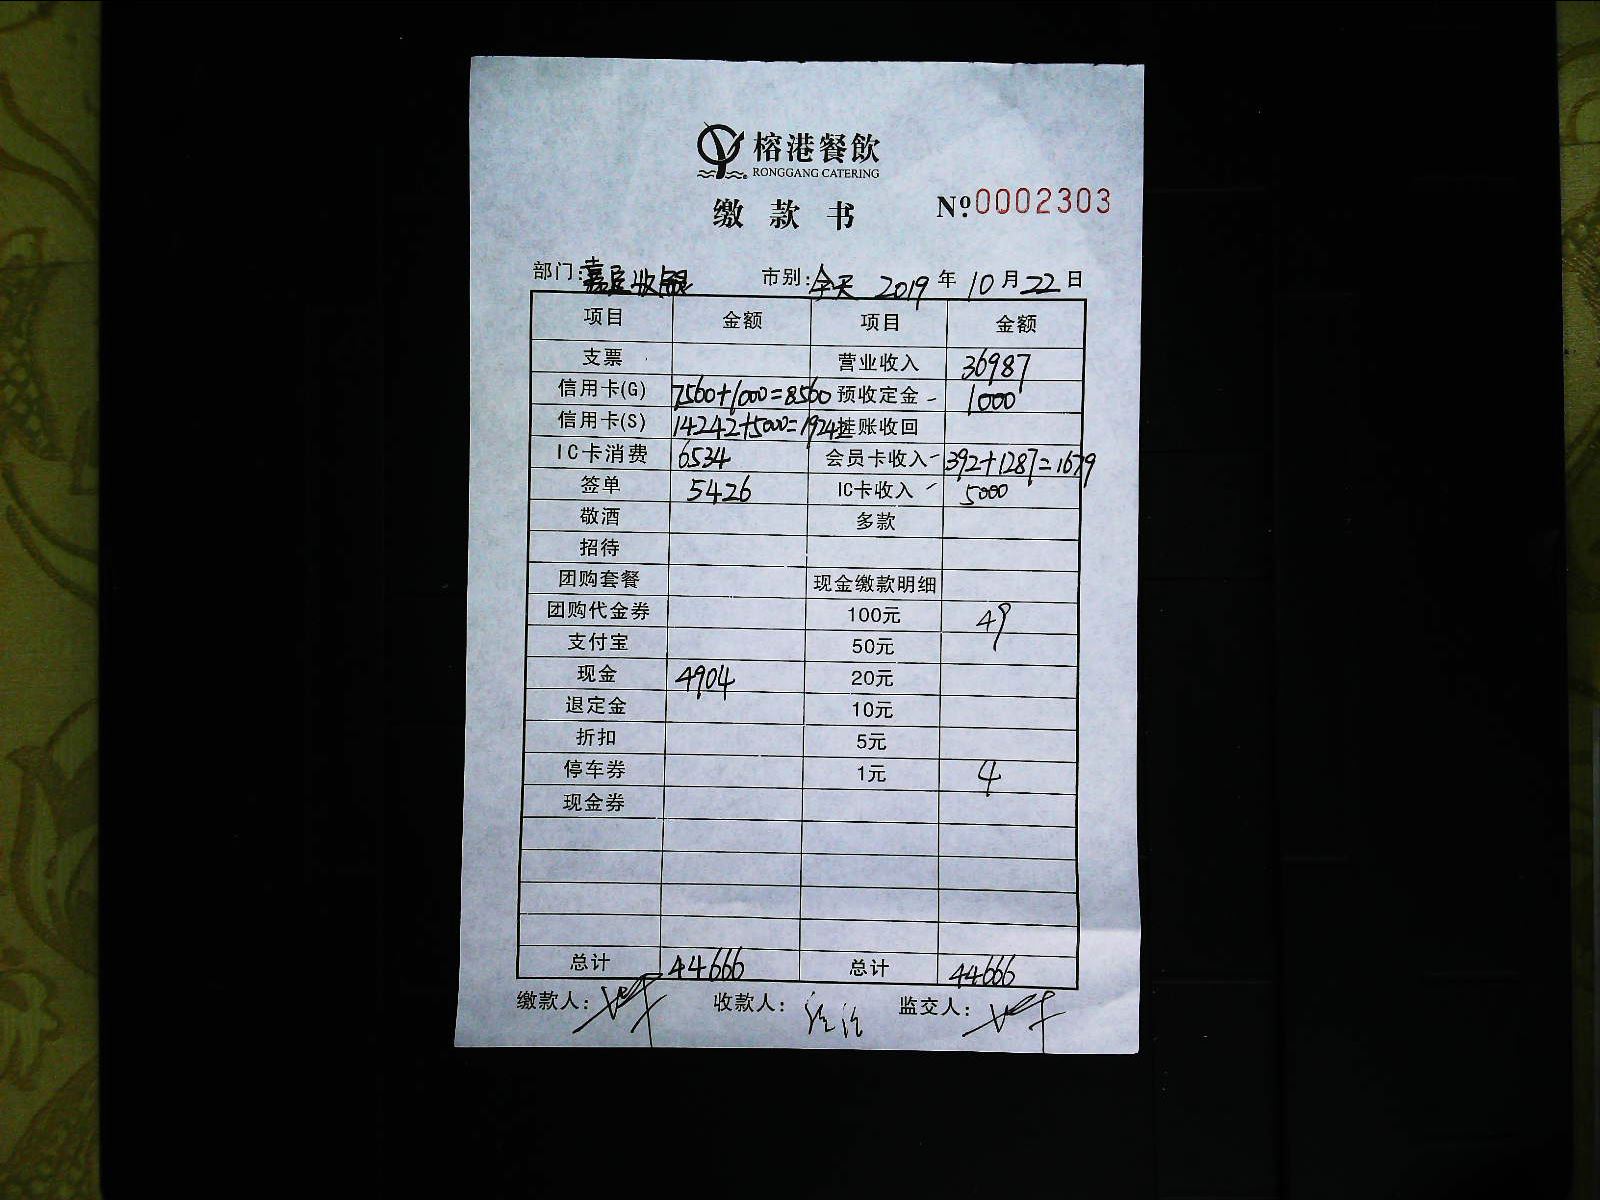 榕港餐飲
RONGGANG CATERING
缴款书
Nº:0002303
部门:嘉定收银 市别:全天 2019年10月22日
项目 金额 项目 金额
支票 营业收入 36987
信用卡(G) 7560+1000=8560 预收定金 1000
信用卡(S) 14242+5000=19242 挂账收回
IC卡消费 6534 会员卡收入 392+1287=1679
签单 5426 IC卡收入 5000
敬酒 多款
招待
团购套餐 现金缴款明细
团购代金券 100元 49
支付宝 50元
现金 4904 20元
退定金 10元
折扣 5元
停车券 1元 4
现金券
总计 44666 总计 44666
缴款人: 收款人: 监交人: